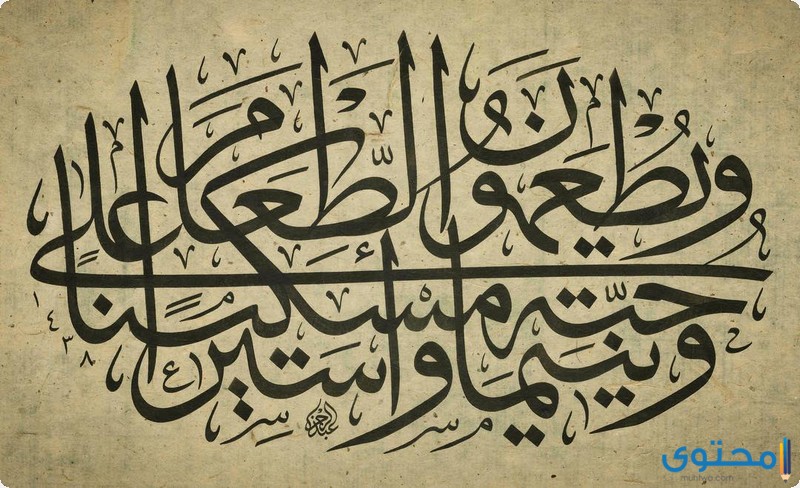 وَيُطْعِمُونَ الطَّعَامَ عَلَى
حُبِّهِ مِسْكِينًا وَيَتِيمًا وَأَسِيرًا
١٤٣٨
محتوى
muhtwa.com